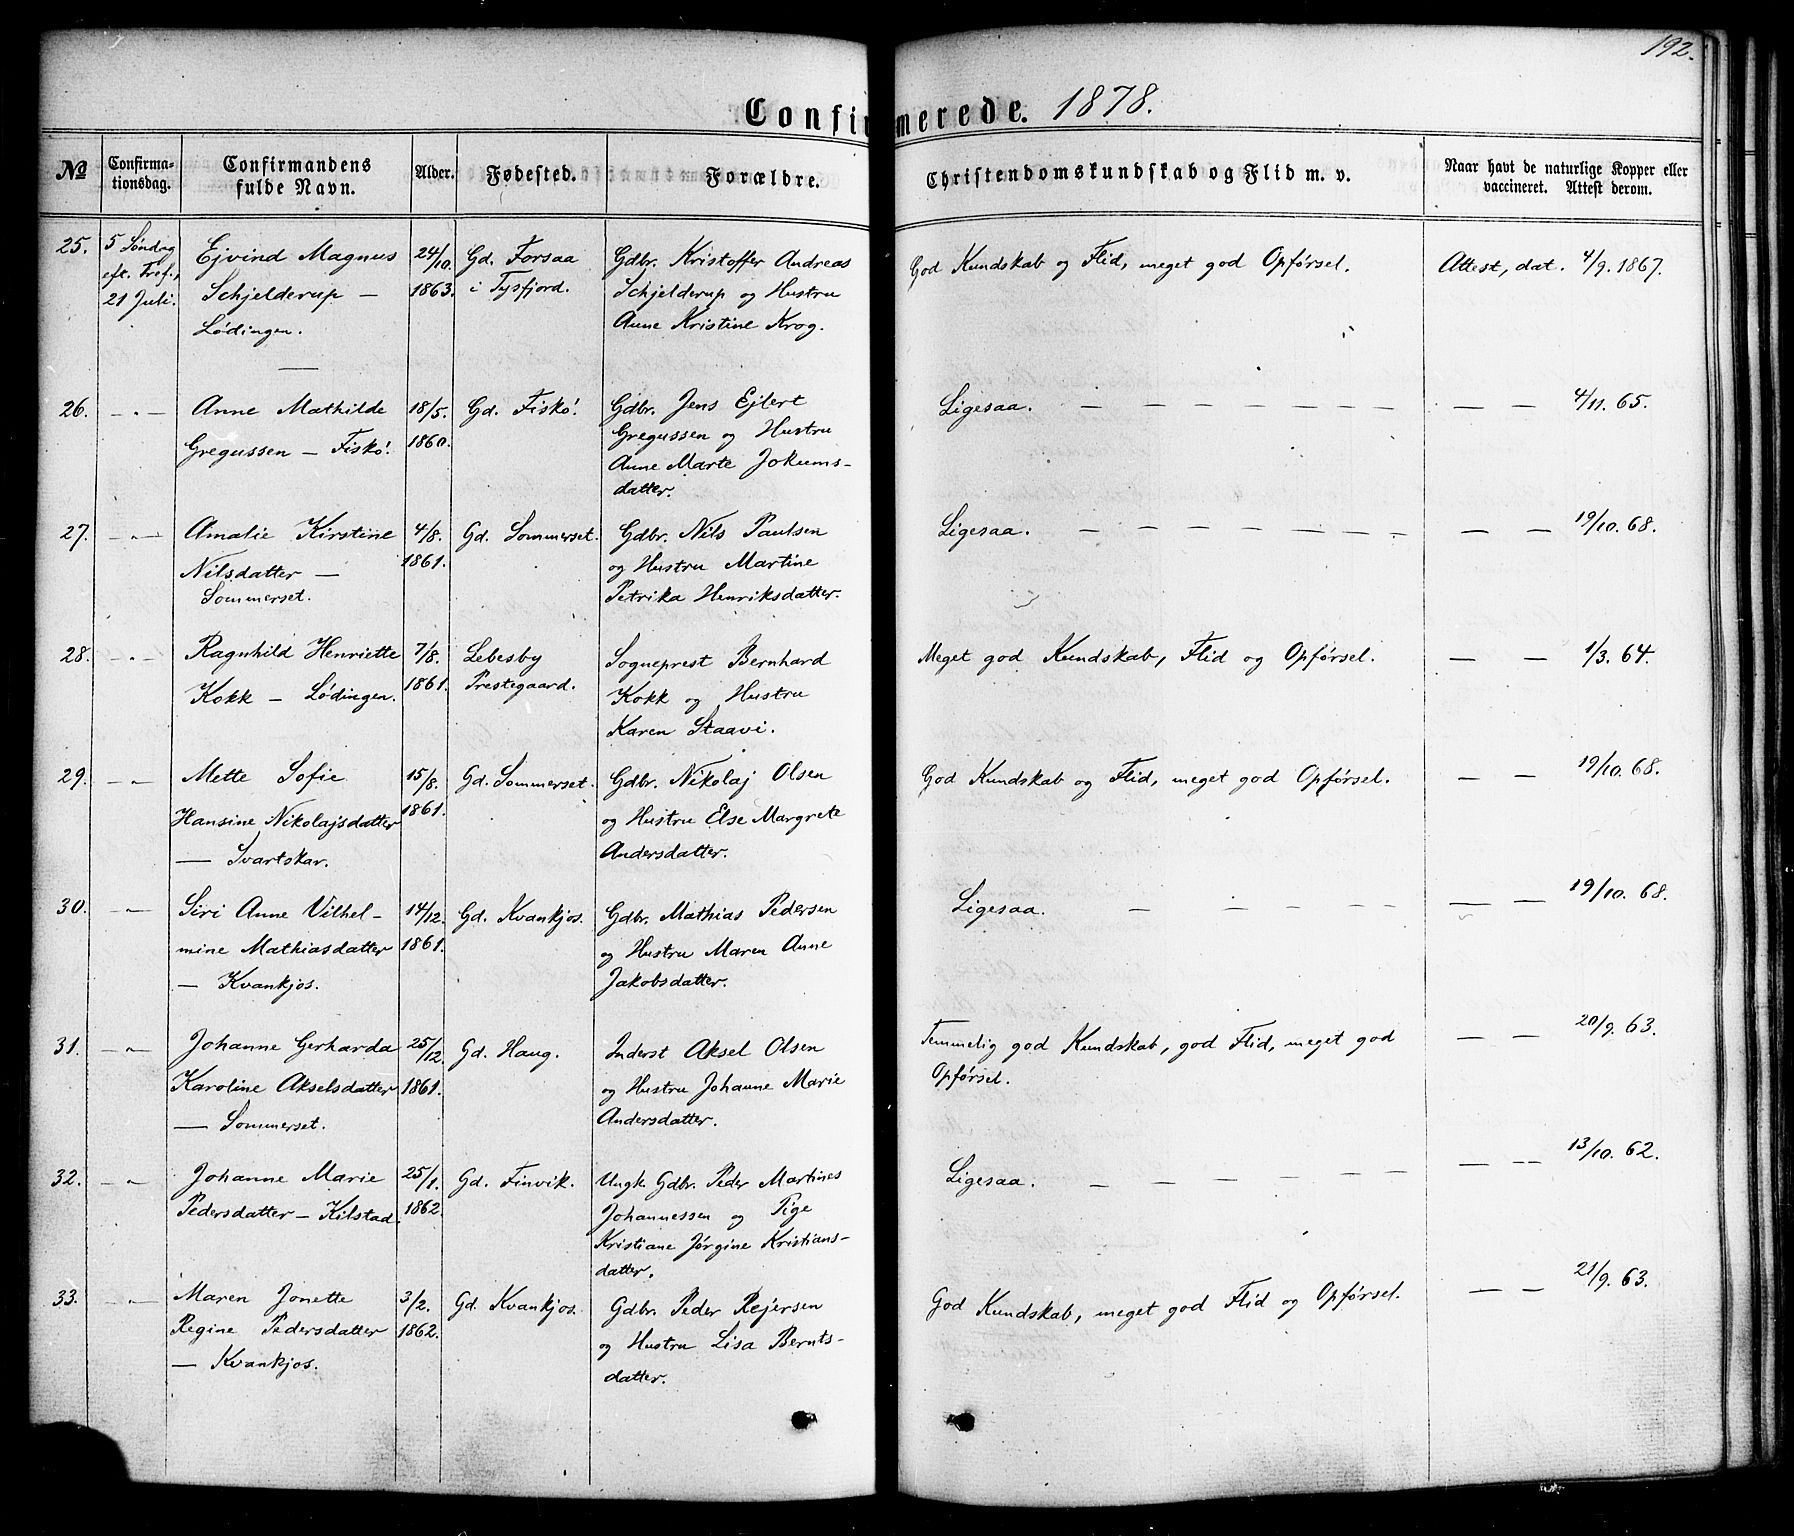 192.
Confirmerede. 1878.
No Confirmationsdag. Confirmandens fulde Navn. Alder. Fødested. Forældre. Christendomskundskab og Flid m. v. Naar havt de naturlige Kopper eller vaccineret. Attest derom.
25. 5 Søndag Ejvind Magnus 24/10. Gd. Forsaa Gdbr. Kristoffer Andreas God Kundskab og Flid, meget god Opførsel. Attest, dat. 4/9. 1867.
eft. Tref., Schjelderup — 1863. i Tysfjord. Schjelderup og Hustru
21 Juli. Lødingen. Anne Kristine Krog.
26. — „ — Anne Mathilde 18/5. Gd. Fiskø. Gdbr. Jens Ejlert Ligesaa. — — — — — — — — — 4/11. 65.
Gregussen — Fiskø. 1860. Gregussen og Hustru
Anne Marte Jokums-
datter.
27. — „ — Amalie Kirstine 4/8. Gd. Sommerset. Gdbr. Nils Paulsen Ligesaa. — — — — — — — — — 19/10. 68.
Nilsdatter — 1861. og Hustru Martine
Sommerset. Petrika Henriksdatter.
28. — „ — Ragnhild Henriette 7/8. Lebesby Sogneprest Bernhard Meget god Kundskab, Flid og Opførsel. — — 1/3. 64.
Kokk — Lødingen. 1861. Prestegaard. Kokk og Hustru
Karen Staavi.
29. — „ Mette Sofie 15/8. Gd. Sommerset. Gdbr. Nikolaj Olsen God Kundskab og Flid, meget god Opførsel. — — 19/10. 68.
Hansine Nikolajsdatter 1861. og Hustru Else Margrete
— Svartskar. Andersdatter.
30. — „ Siri Anne Vilhel- 14/12. Gd. Kvankjos. Gdbr. Mathias Pedersen Ligesaa. — — — — — — — 19/10. 68.
mine Mathiasdatter 1861. og Hustru Maren Anne
— Kvankjos. Jakobsdatter.
31. — „ Johanne Gerharda 25/12. Gd. Haug. Inderst Aksel Olsen Temmelig god Kundskab, god Flid, meget god — — 20/9. 63.
Karoline Akselsdatter 1861. og Hustru Johanne Marie Opførsel.
— Sommerset. Andersdatter.
32. — „ Johanne Marie 25/1. Gd. Finvik. Ungk. Gdbr. Peder Martines Ligesaa. — — — — — — — — — 13/10. 62.
Pedersdatter — Kilstad. 1862. Johannessen og Pige
Kristiane Jørgine Kristians-
datter.
33. — „ Maren Jonette 3/2. Gd. Kvankjos. Gdbr. Peder Rejersen God Kundskab, meget god Flid og Opførsel. — — 21/9. 63.
Regine Pedersdatter 1862. og Hustru Lisa Bernts-
— Kvankjos. datter.